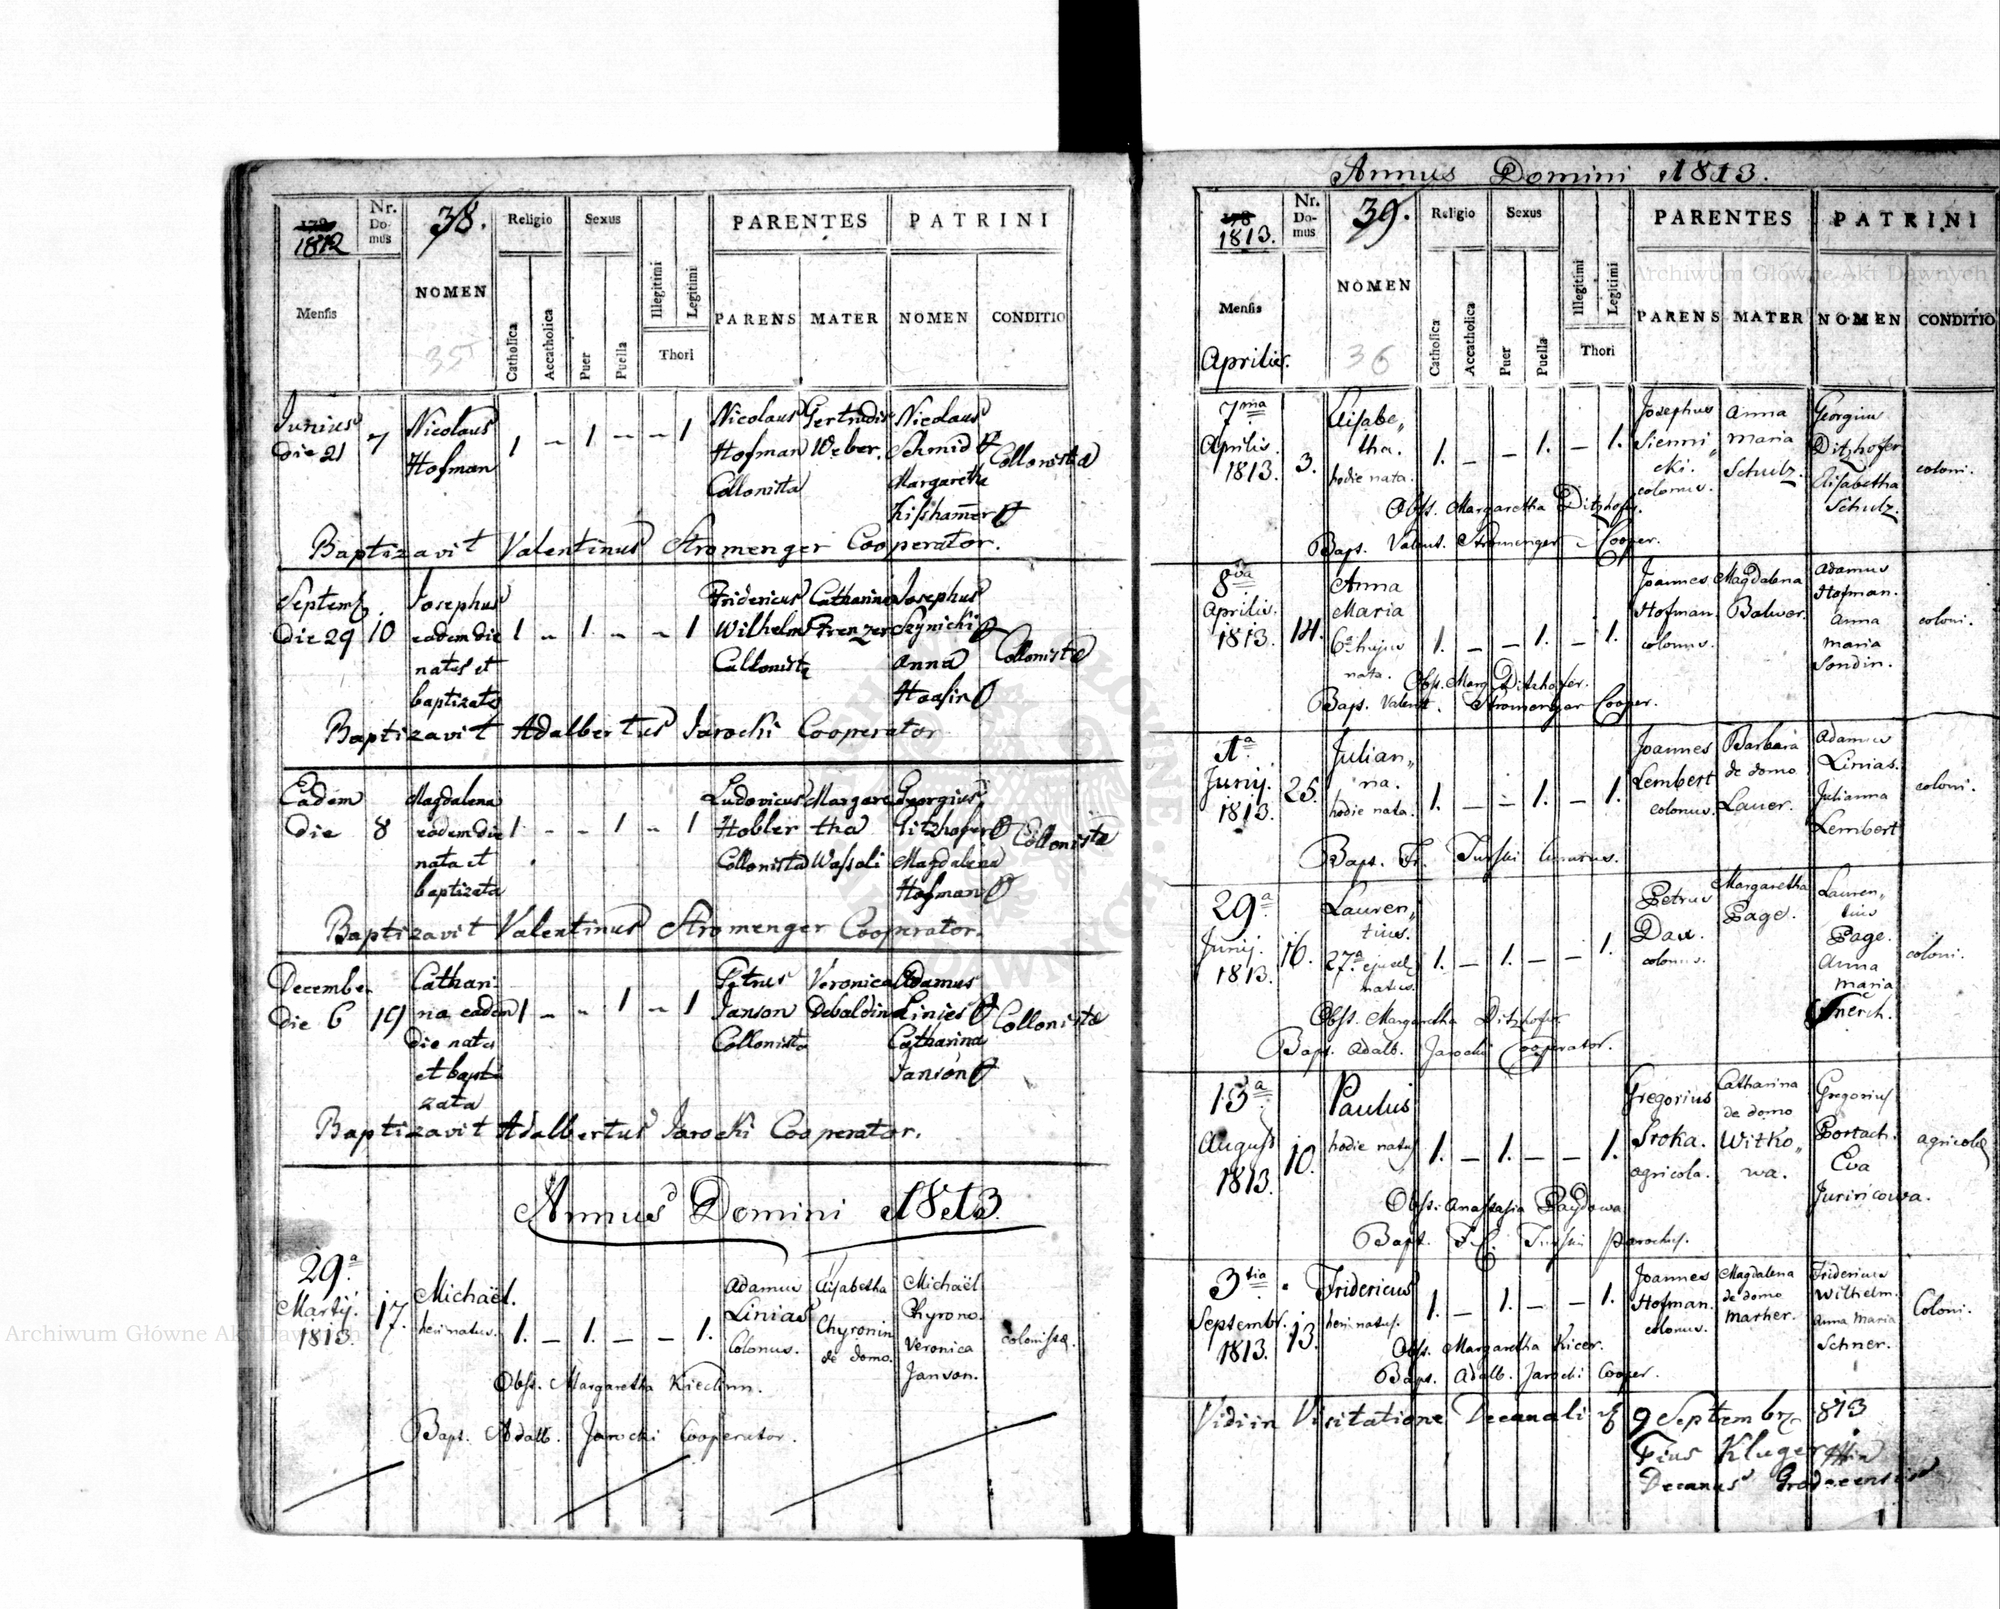 38.
1812
Nr. Domus
NOMEN
Religio
Sexus
PARENTES
PATRINI
Mensis
Catholica
Accatholica
Puer
Puella
Illegitimi
Legitimi
Thori
PARENS
MATER
NOMEN
CONDITIO
35
Junius die 21
7
Nicolaus Hofman
1 – 1 – – 1
Nicolaus Hofman Collonista
Gertrudis Weber.
Nicolaus Schmid
Margaretha
Collonista
Baptizavit Valentinus Stromenger Cooperator.
Die 29
10
Josephus eadem die natus et baptizatus
1 – 1 – – 1
Fridericus Wilhelm Collonista
Catharina Prenzer
Josephus
Anna
Collonista
Baptizavit Adalbertus Jarocki Cooperator
Eadem die
8
Magdalena eadem die nata et baptizata
1 – – 1 – 1
Ludovicus Hobler Collonista
Margaretha Wassali
Georgius
Magdalena Hofman
Collonista
Baptizavit Valentinus Stromenger Cooperator.
December die 6
19
Catharina eadem die nata et baptizata
1 – – 1 – 1
Petrus Janson Collonista
Veronica Debaldin
Adamus Linies
Catharina Janson
Collonista
Baptizavit Adalbertus Jarocki Cooperator.
Annus Domini 1813.
29a Martij. 1813.
17.
Michaël. heri natus.
1. – 1. – – 1.
Adamus Linias Colonus.
Elisabetha Chyronin de domo.
Michaël Chyrono.
Veronica Janson.
Obst. Margaretha
Bapt. Adalb. Jarocki Cooperator.
Annus Domini 1813.
39.
1813.
Nr. Domus
NOMEN
Religio
Sexus
PARENTES
PATRINI
Mensis
Catholica
Accatholica
Puer
Puella
Illegitimi
Legitimi
Thori
PARENS
MATER
NOMEN
CONDITIO
Aprilis.
36
7ma Aprilis. 1813.
3.
Elisabetha. hodie nata.
1. – – 1. – 1.
Josephus Siennicki. colonus.
Anna Maria Schulz.
Georgius Ditzhofer
Elisabetha Schulz.
coloni.
Obst. Margaretha Ditzhofer.
Bapt. Valent. Stromenger – Cooper.
8va Aprilis. 1813.
14.
Anna Maria 6a hujus nata.
1. – – 1. – 1.
Joannes Hofman. colonus.
Magdalena
Adamus Hofman.
Anna Maria Sondin.
coloni.
Obst. Marg. Ditzhofer.
Bapt. Valent. Stromenger Cooper.
1a Junij. 1813.
25.
Julianna. hodie nata.
1. – – 1. – 1.
Joannes Lembert colonus.
Barbara de domo Lauer.
Adamus Linias.
Julianna Lembert
coloni.
Bapt. Fr. Turski Curatus.
29a Junij. 1813.
16.
Laurentius. 27a natus.
1. – 1. – – 1.
Petrus Dax. colonus.
Margaretha Page.
Laurentius Page.
Anna Maria
coloni.
Obst. Margaretha Ditzhofer.
Bapt. Adalb. Jarocki Cooperator.
13a August 1813.
10.
Paulus hodie natus
1. – 1. – – 1.
Gregorius Sroka. agricola.
Catharina de domo Witkowa.
Gregorius
Eva
Obst. Anastasia
Bapt. Fr. Turski Parochus.
3tia Septembr. 1813.
13.
Fridericus heri natus.
1. – 1. – – 1.
Joannes Hofman. colonus.
Magdalena de domo Marher.
Fridericus Wilhelm.
Anna Maria Schner.
Coloni.
Obst. Margaretha Kicer.
Bapt. Adalb. Jarocki Cooper.
Vidi in Visitatione Decanali
9 Septembr. 813
Kluger
Decanus
Archiwum Główne Akt Dawnych
Archiwum Główne Akt Dawnych